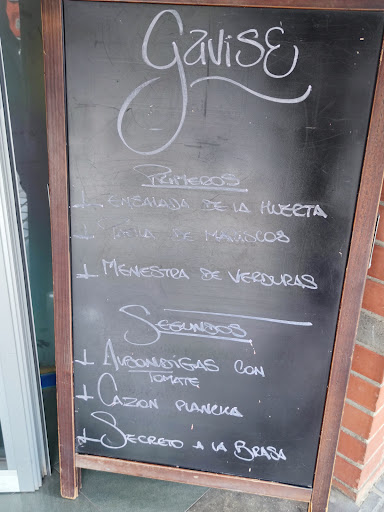 Gavise
PRIMEROS
ENSALADA DE LA HUERTA
DE MARISCOS
MENESTRA DE VERDURAS
SEGUNDOS
ALBONDIGAS CON
TOMATE
CAZON PLANCHA
SECRETO A LA BRASA